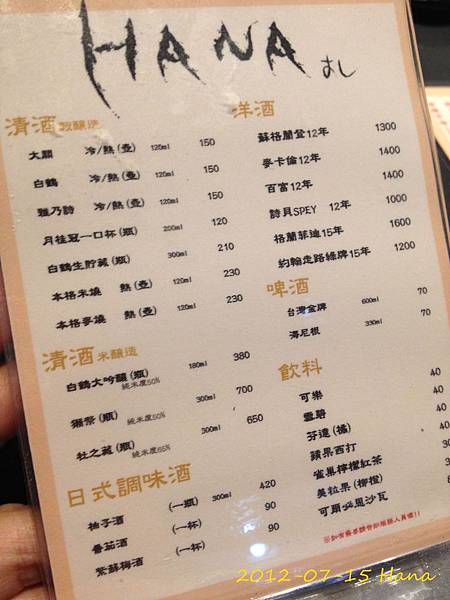 HANA
清酒 穀釀造
大關 冷/熱(壺) 120ml 150
白鶴 冷/熱(壺) 120ml 150
雅乃詩 冷/熱(壺) 120ml 150
月桂冠一口杯(瓶) 200ml 120
白鶴生貯藏(瓶) 300ml 210
本格米燒 熱(壺) 120ml 230
本格麥燒 熱(壺) 120ml 230
清酒 米釀造
白鶴大吟釀(瓶) 180ml 380
純米度50%
獺祭(瓶) 300ml 700
純米度50%
杜之藏(瓶) 300ml 650
純米度55%
日式調味酒
柚子酒 (一瓶) 300ml 420
番茄酒 (一杯) 90
紫蘇梅酒 (一杯) 90
洋酒
蘇格蘭登12年 1300
麥卡倫12年 1400
百富12年 1400
詩貝SPEY 12年 1000
格蘭菲迪15年 1600
約翰走路綠牌15年 1200
啤酒
台灣金牌 600ml 70
海尼根 330ml 70
飲料
可樂 40
雪碧 40
芬達(橘) 40
蘋果西打
雀巢檸檬紅茶
美粒果(柳橙)
可爾必思沙瓦
2012-07-15 Hana